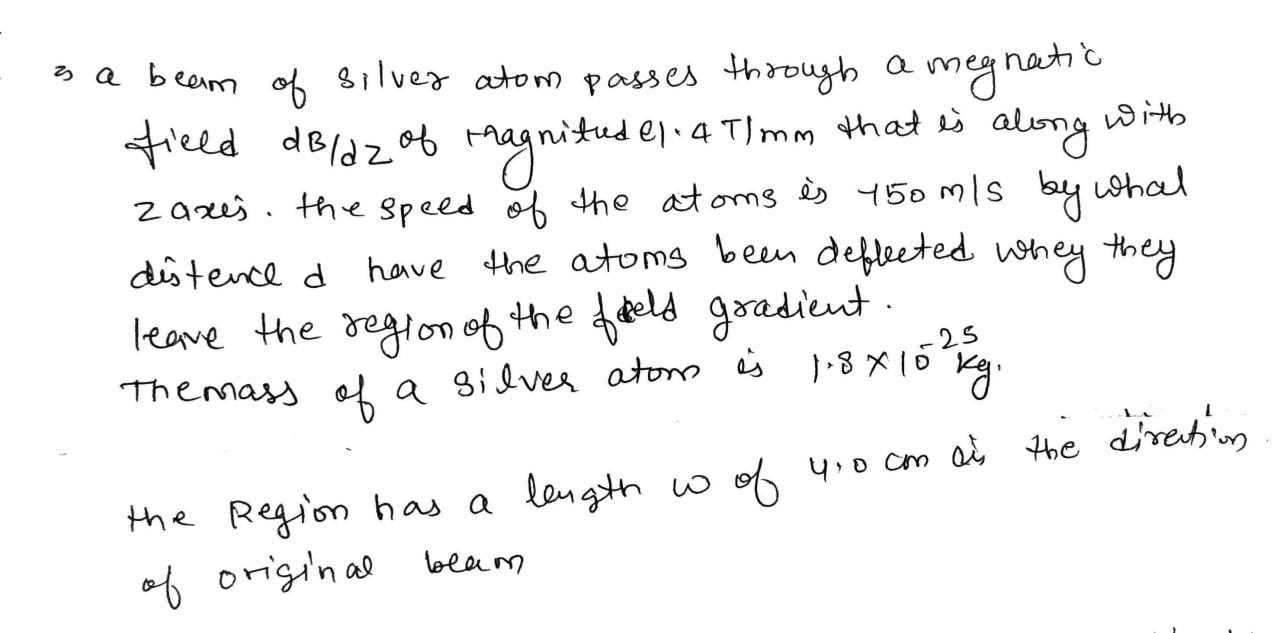 a beam of silver atom passes through a megnatic
field dB/dz of magnitude 1.4 T/mm that is along with
z axis. the speed of the atoms is 750 m/s by what
distence d have the atoms been deflected whey they
leave the region of the field gradient.
The mass of a silver atom is 1.8 × 10^-25 kg.
the Region has a length w of 4.0 cm is the direction
of original beam